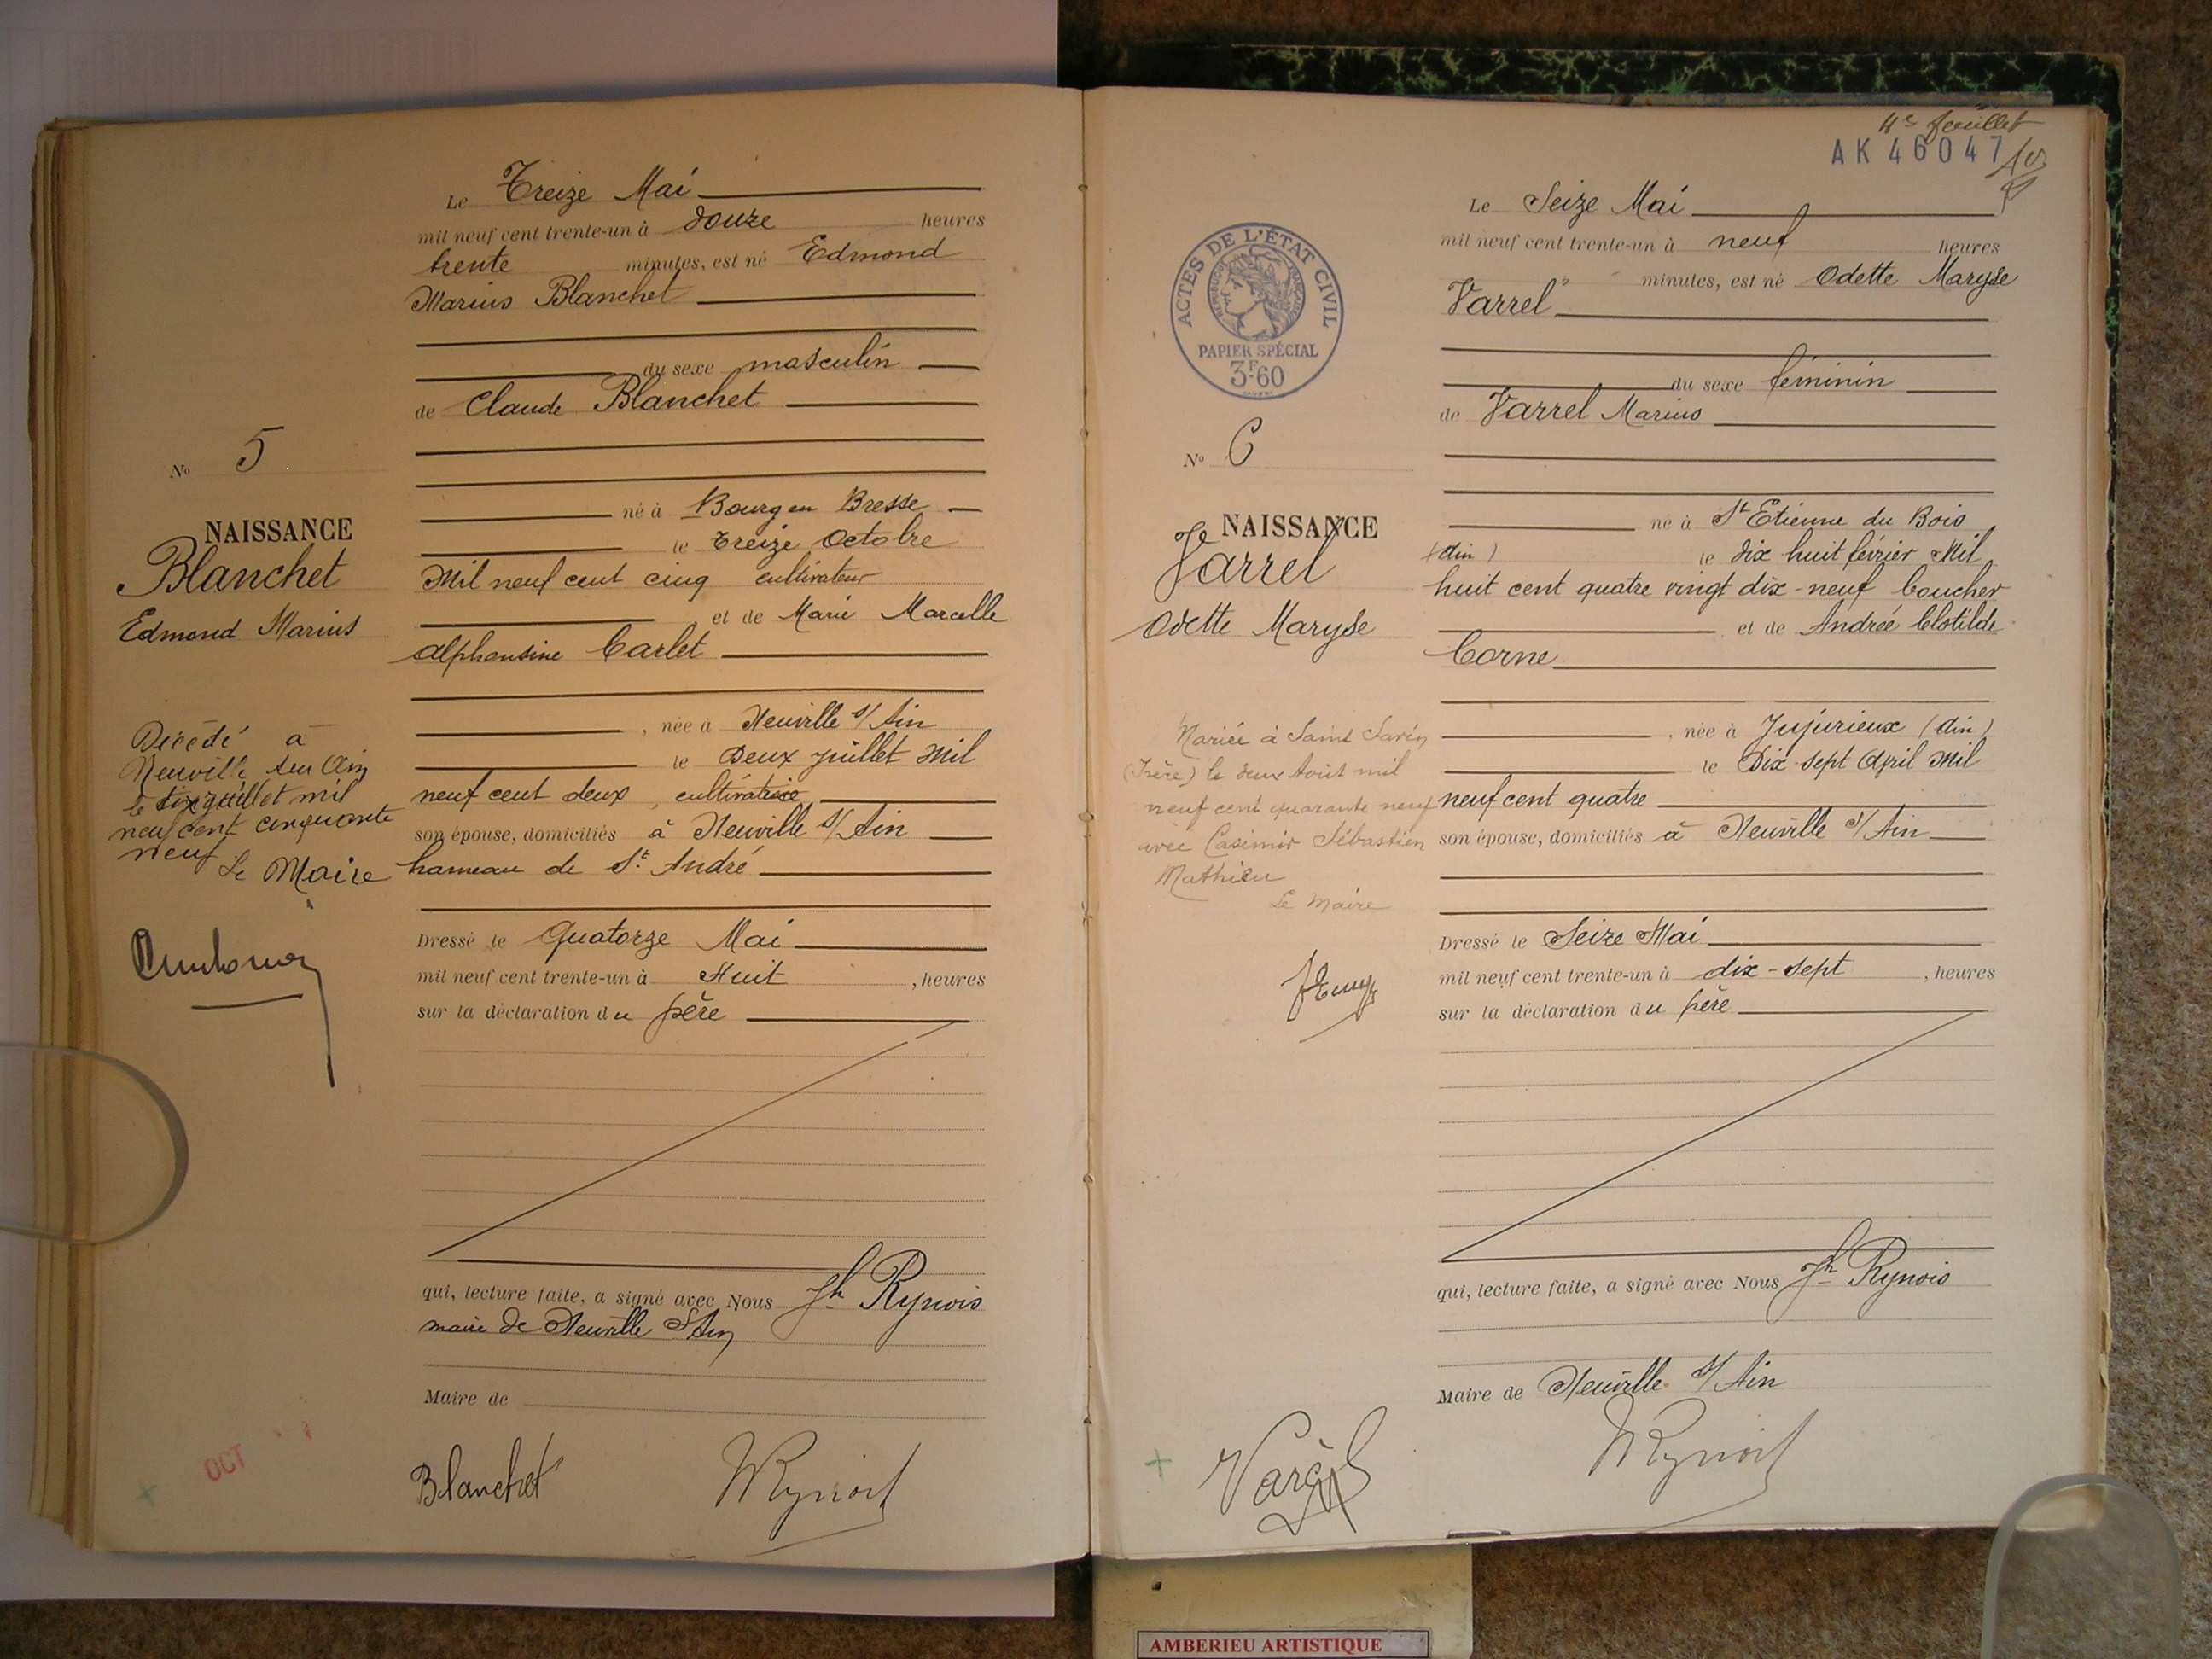 Le Treize Mai
mil neuf cent trente-un à douze heures
trente minutes, est né Edmond
Marius Blanchet
du sexe masculin
de Claude Blanchet
N° 5
né à Bourg en Bresse
NAISSANCE
le treize Octobre
Blanchet
Mil neuf cent cinq cultivateur
Edmond Marius
et de Marie Marcelle
Alphonsine Carlet
née à Neuville s/ Ain
le Deux juillet Mil
neuf cent deux, cultivatrice
son épouse, domiciliés à Neuville s/ Ain
hameau de St. André
Décédé à
Neuville sur Ain
le six juillet mil
neuf cent cinquante
neuf
Le Maire
Dressé le Quatorze Mai
mil neuf cent trente-un à Huit, heures
sur la déclaration du père
qui, lecture faite, a signé avec Nous Jh Rynois
maire de Neuville s/Ain
Maire de
OCT
Blanchet
Rynois
4e feuillet
AK 46047
Le Seize Mai
mil neuf cent trente-un à neuf heures
minutes, est né Odette Maryse
Varrel
ACTES DE L'ÉTAT CIVIL
RÉPUBLIQUE FRANÇAISE
PAPIER SPÉCIAL
3F.60
du sexe féminin
de Varrel Marius
N° 6
né à St Etienne du Bois
NAISSANCE
(Ain) le dix huit février Mil
Varrel
huit cent quatre vingt dix-neuf boucher
Odette Maryse
et de Andrée Clotilde
Corne
née à Jujurieux (Ain)
le Dix-sept Avril Mil
neuf cent quatre
son épouse, domiciliés à Neuville s/ Ain
Mariée à Saint Savin
(Isère) le deux Août mil
neuf cent quarante neuf
avec Casimir Sébastien
Mathieu
Le Maire
Dressé le Seize Mai
mil neuf cent trente-un à dix-sept, heures
sur la déclaration du père
qui, lecture faite, a signé avec Nous Jh Rynois
Maire de Neuville s/ Ain
Varrel
Rynois
AMBERIEU ARTISTIQUE